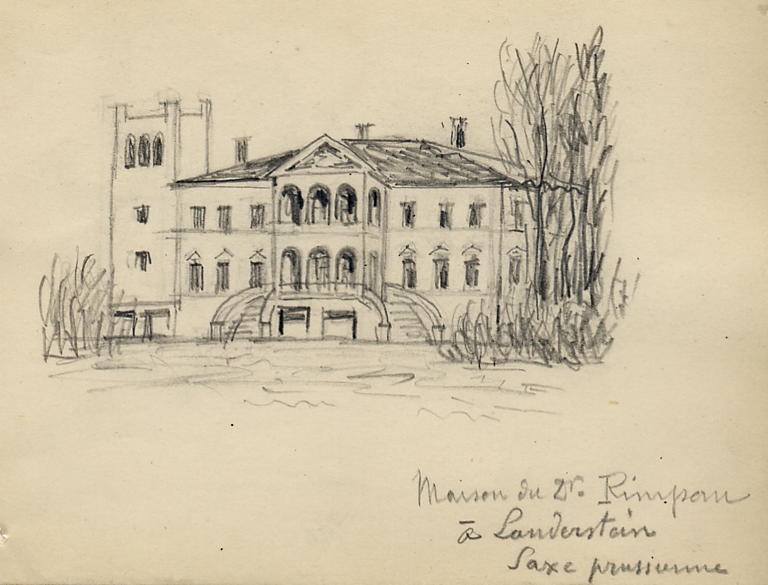 Maison du Dr. Rimpau
à Landerstein
Saxe prussienne